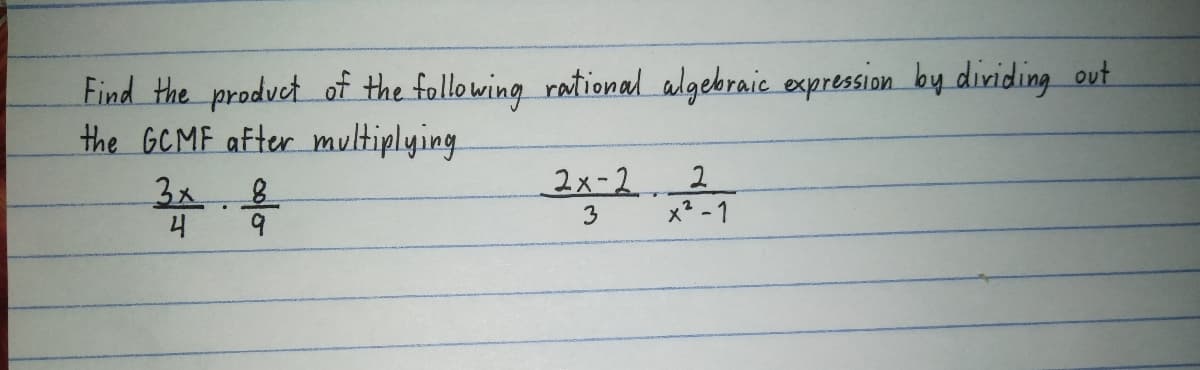 Find the product of the following rational algebraic expression by dividing out
the GCMF after multiplying
3x/4 · 8/9    2x-2/3 · 2/x²-1